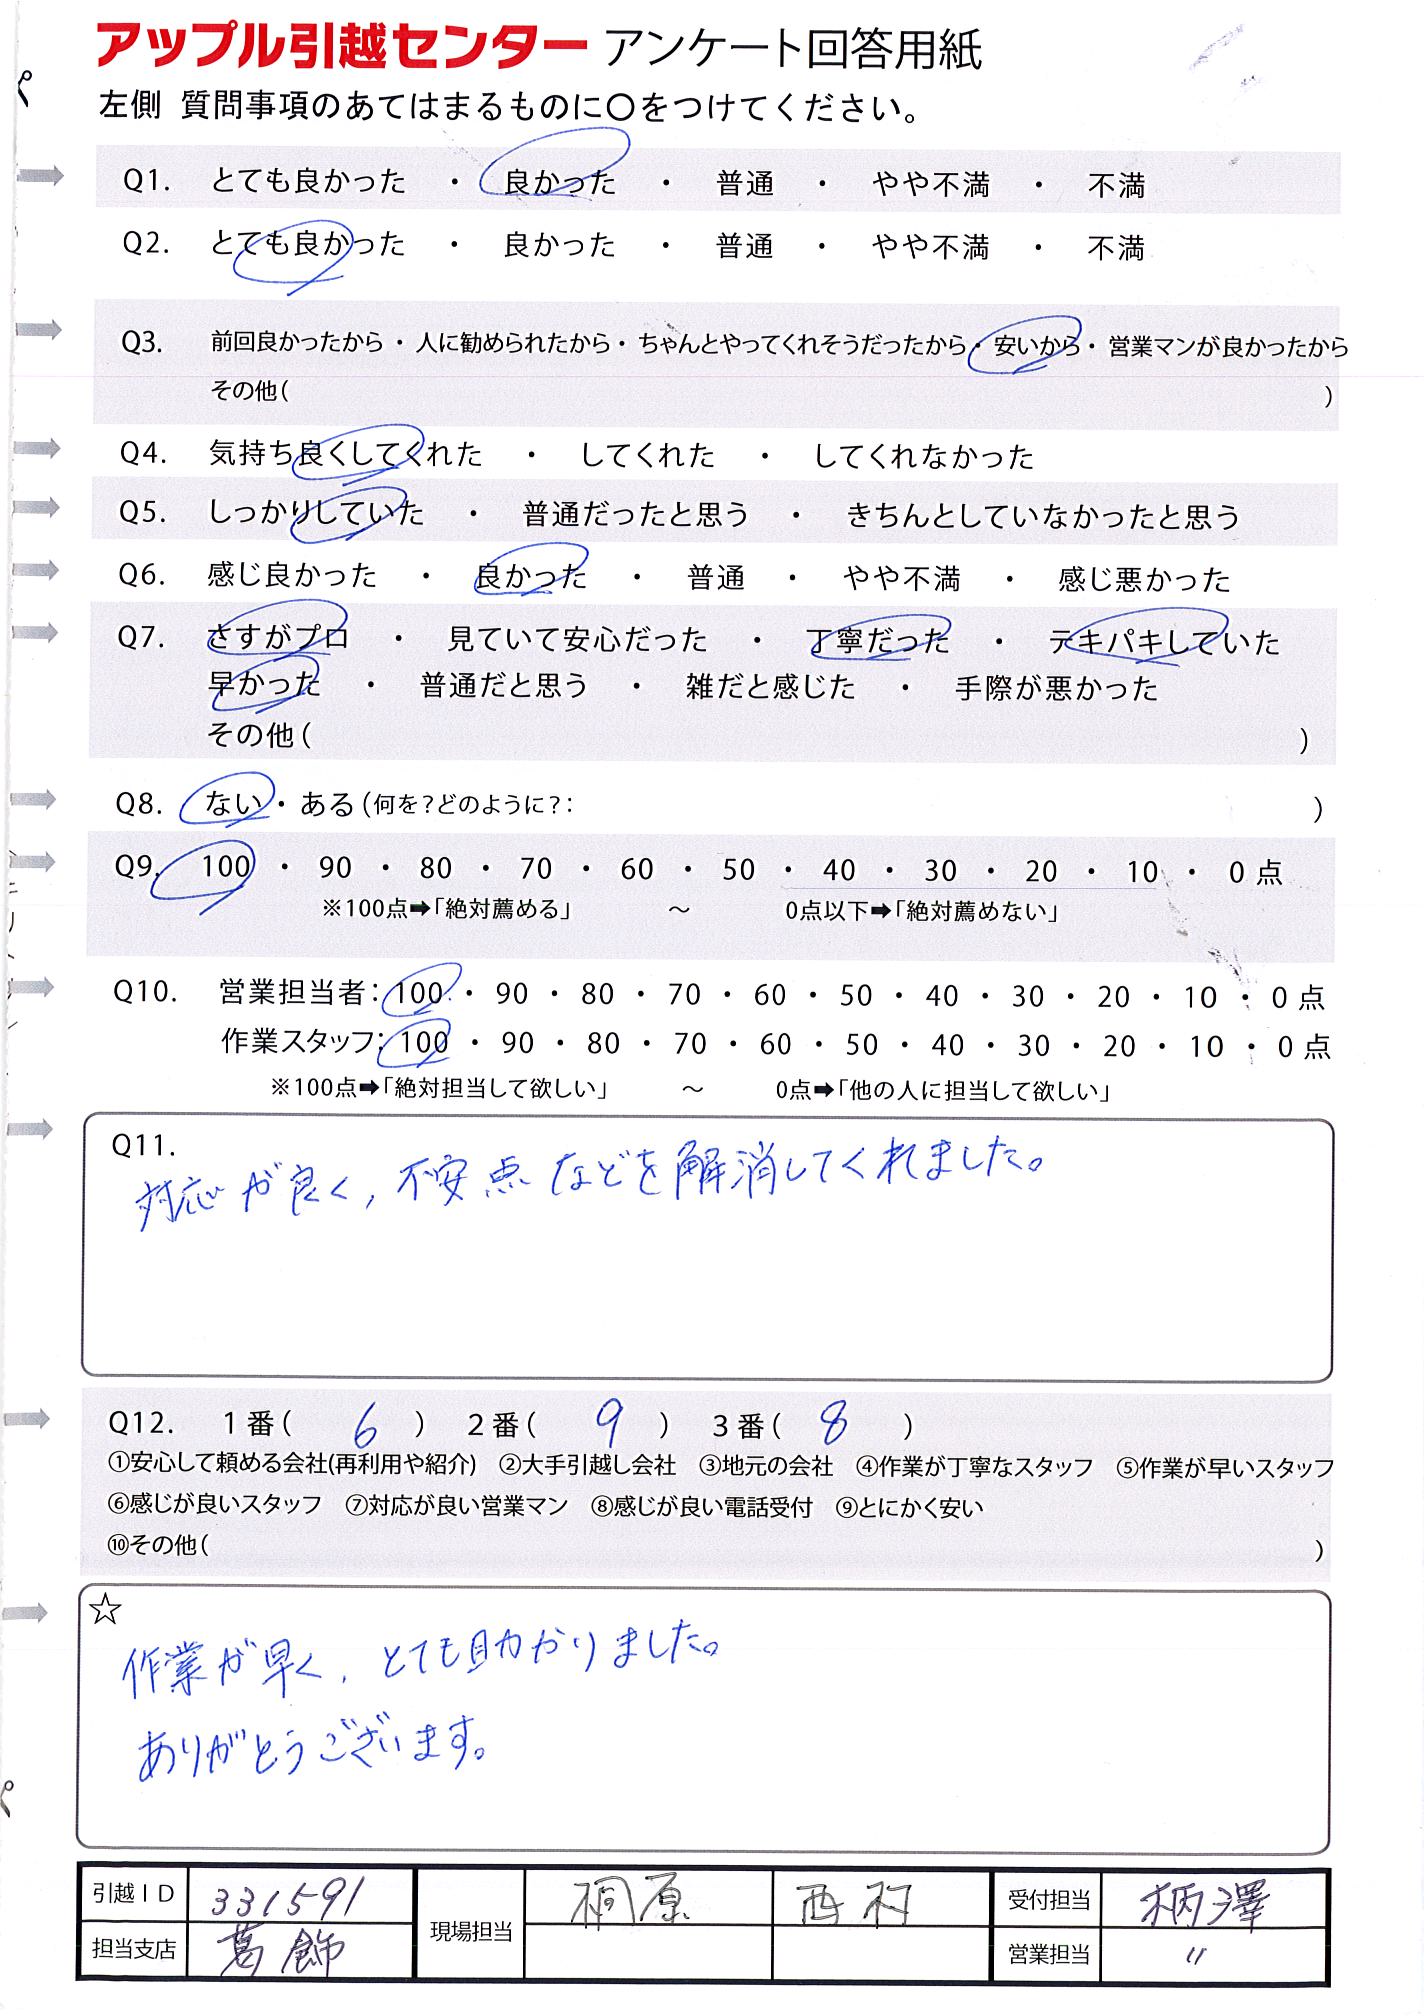 アップル引越センター アンケート回答用紙
左側 質問事項のあてはまるものに○をつけてください。
Q1. とても良かった ・ 良かった ・ 普通 ・ やや不満 ・ 不満
Q2. とても良かった ・ 良かった ・ 普通 ・ やや不満 ・ 不満
Q3. 前回良かったから・人に勧められたから・ちゃんとやってくれそうだったから・安いから・営業マンが良かったから
その他( )
Q4. 気持ち良くしてくれた ・ してくれた ・ してくれなかった
Q5. しっかりしていた ・ 普通だったと思う ・ きちんとしていなかったと思う
Q6. 感じ良かった ・ 良かった ・ 普通 ・ やや不満 ・ 感じ悪かった
Q7. さすがプロ ・ 見ていて安心だった ・ 丁寧だった ・ テキパキしていた
早かった ・ 普通だと思う ・ 雑だと感じた ・ 手際が悪かった
その他( )
Q8. ない・ある(何を?どのように?: )
Q9. 100 ・ 90 ・ 80 ・ 70 ・ 60 ・ 50 ・ 40 ・ 30 ・ 20 ・ 10 ・ 0点
※100点➡「絶対薦める」 ~ 0点以下➡「絶対薦めない」
Q10. 営業担当者:100・90・80・70・60・50・40・30・20・10・0点
作業スタッフ:100・90・80・70・60・50・40・30・20・10・0点
※100点➡「絶対担当して欲しい」 ~ 0点➡「他の人に担当して欲しい」
Q11.
対応が良く,不安点などを解消してくれました。
Q12. 1番( 6 ) 2番( 9 ) 3番( 8 )
①安心して頼める会社(再利用や紹介) ②大手引越し会社 ③地元の会社 ④作業が丁寧なスタッフ ⑤作業が早いスタッフ
⑥感じが良いスタッフ ⑦対応が良い営業マン ⑧感じが良い電話受付 ⑨とにかく安い
⑩その他( )
☆
作業が早く、とても助かりました。
ありがとうございます。
引越ID 331591 現場担当 桐原 西村 受付担当 柄澤
担当支店 葛飾 営業担当 〃